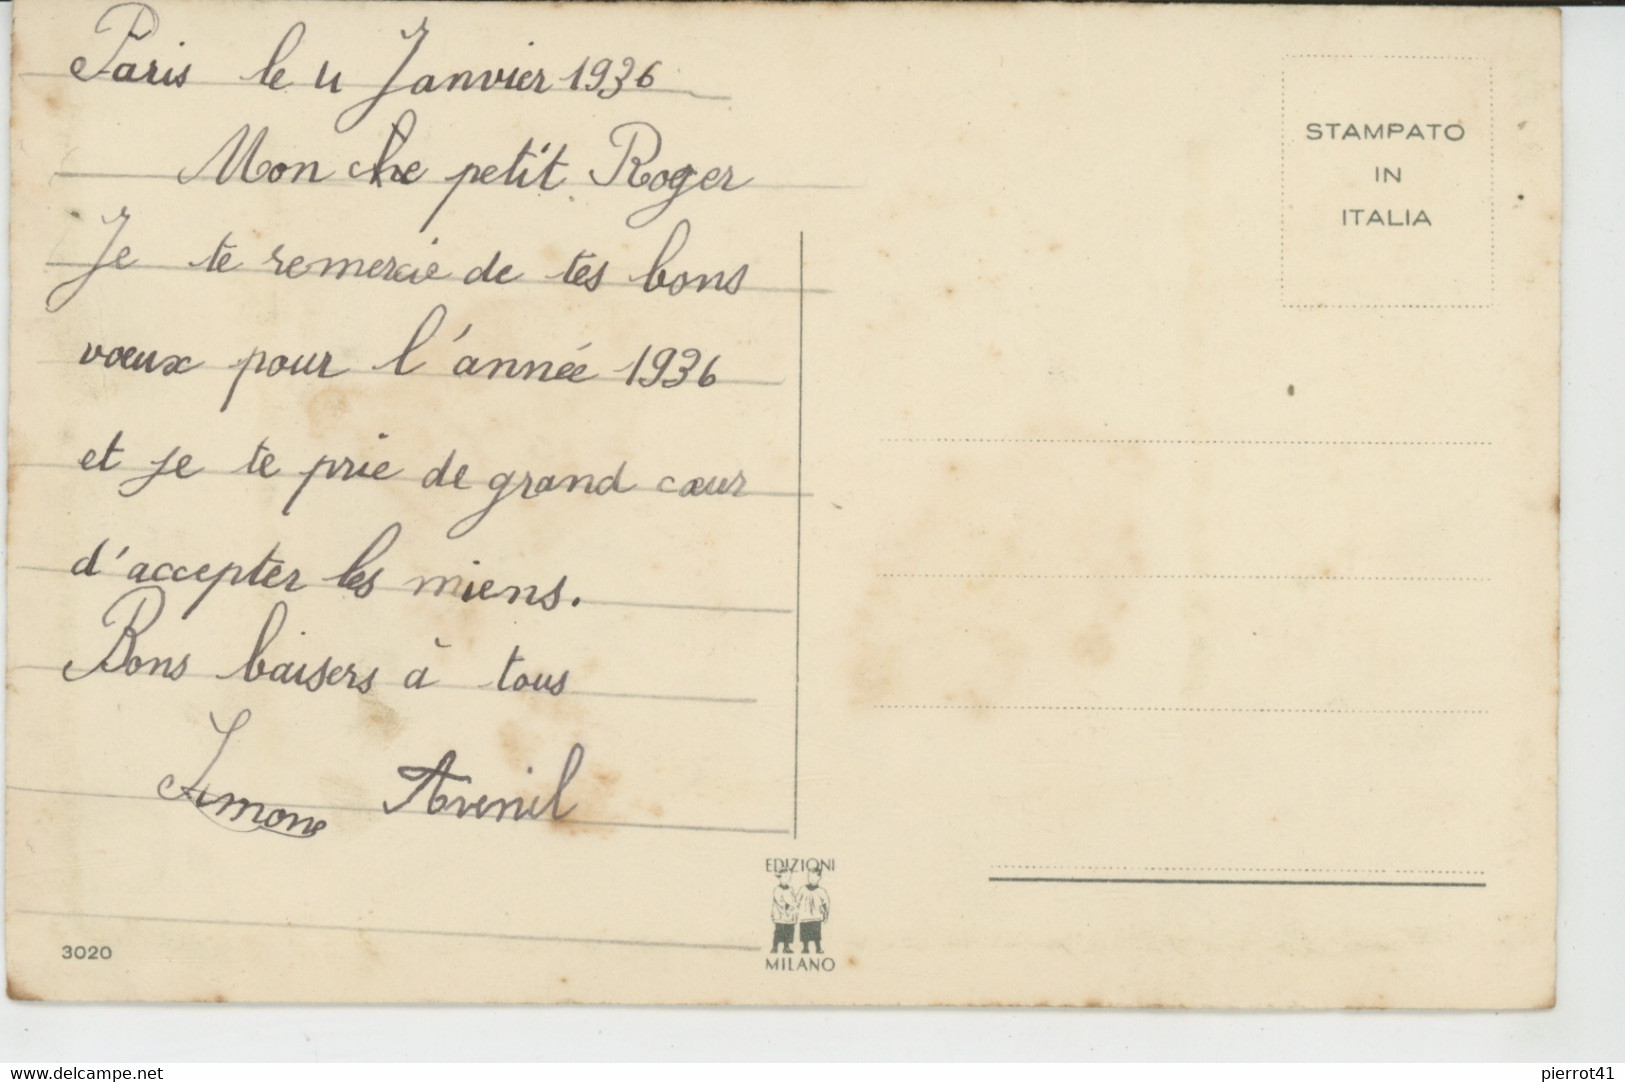 Paris le 4 Janvier 1936
Mon che petit Roger
Je te remercie de tes bons
vœux pour l'année 1936
et je te prie de grand cœur
d'accepter les miens.
Bons baisers à tous
Simone Avenil
STAMPATO
IN
ITALIA
EDIZIONI
MILANO
3020
delcampe.net
pierrot41